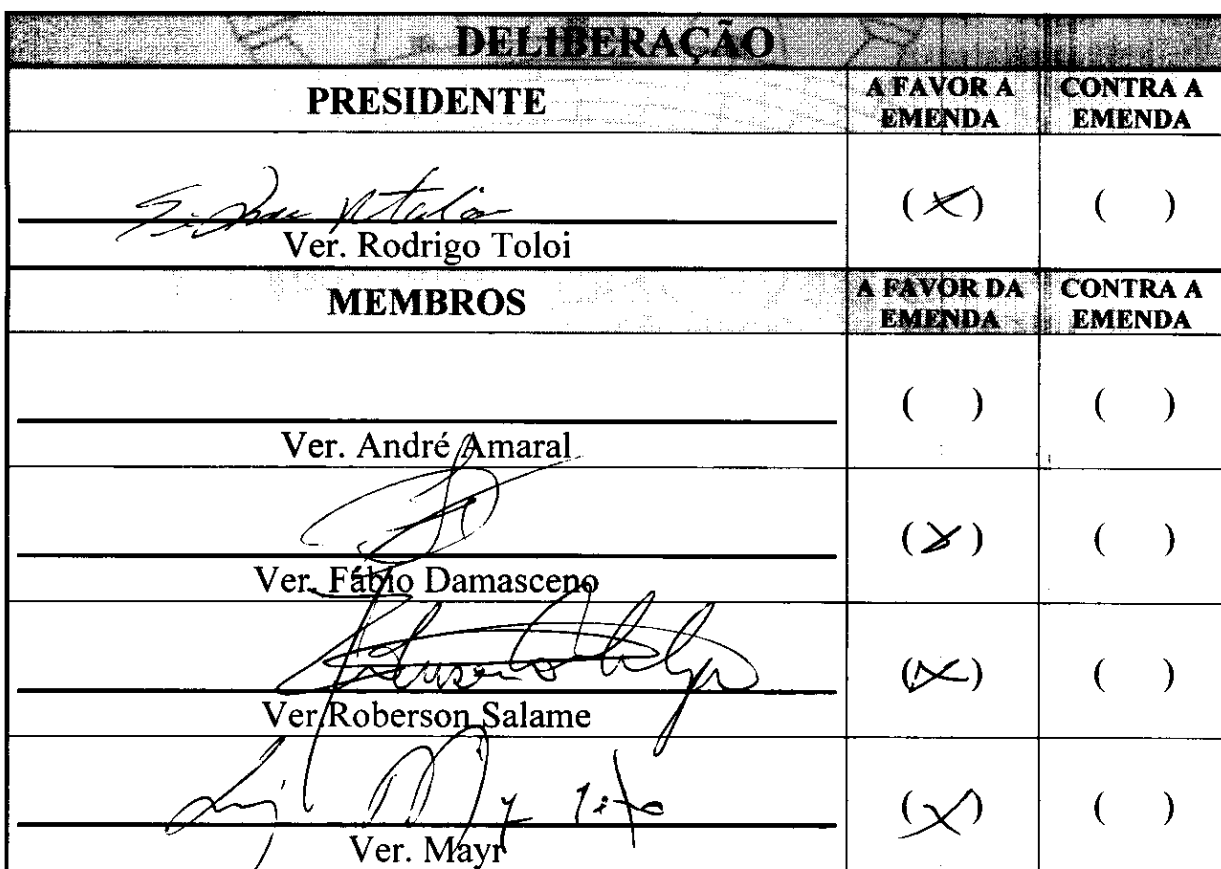 DELIBERAÇÃO
PRESIDENTE
A FAVOR A
EMENDA
CONTRA A
EMENDA
(X)
( )
Ver. Rodrigo Toloi
MEMBROS
A FAVOR DA
EMENDA
CONTRA A
EMENDA
( )
( )
Ver. André Amaral
(X)
( )
Ver. Fábio Damasceno
(X)
( )
Ver.Roberson Salame
(X)
( )
Ver. Mayr